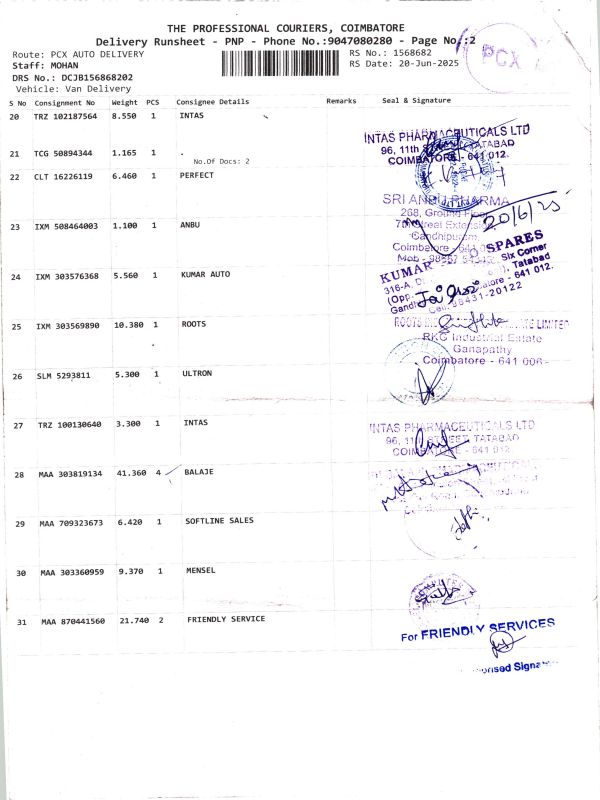 THE PROFESSIONAL COURIERS, COIMBATORE
Delivery Runsheet - PNP - Phone No.:9047080280 - Page No.:2
Route: PCX AUTO DELIVERY
RS No.: 1568682
Staff: MOHAN
RS Date: 20-Jun-2025
DRS No.: DCJB156868202
Vehicle: Van Delivery
PCX
S No Consignment No Weight PCS Consignee Details Remarks Seal & Signature
20 TRZ 102187564 8.550 1 INTAS
INTAS PHARMACEUTICALS LTD
96, 11th STREET, TATABAD
COIMBATORE - 641 012.
21 TCG 50894344 1.165 1
No.Of Docs: 2
22 CLT 16226119 6.460 1 PERFECT
SRI ANBU PHARMA
268, Ground Floor
7th Street Extension
Gandhipuram,
Coimbatore
20/6/25
23 IXM 508464003 1.100 1 ANBU
24 IXM 303576368 5.560 1 KUMAR AUTO
KUMAR SPARES
Six Corner
Tatabad
641 012.
98431-20122
25 IXM 303569890 10.380 1 ROOTS
ROOTS LIMITED
RKC Industrial Estate
Ganapathy
Coimbatore - 641 006
26 SLM 5293811 5.300 1 ULTRON
27 TRZ 100130640 3.300 1 INTAS
INTAS PHARMACEUTICALS LTD
96, 11th STREET, TATABAD
COIMBATORE - 641 012
28 MAA 303819134 41.360 4 BALAJE
29 MAA 709323673 6.420 1 SOFTLINE SALES
30 MAA 303360959 9.370 1 MENSEL
31 MAA 870441560 21.740 2 FRIENDLY SERVICE
For FRIENDLY SERVICES